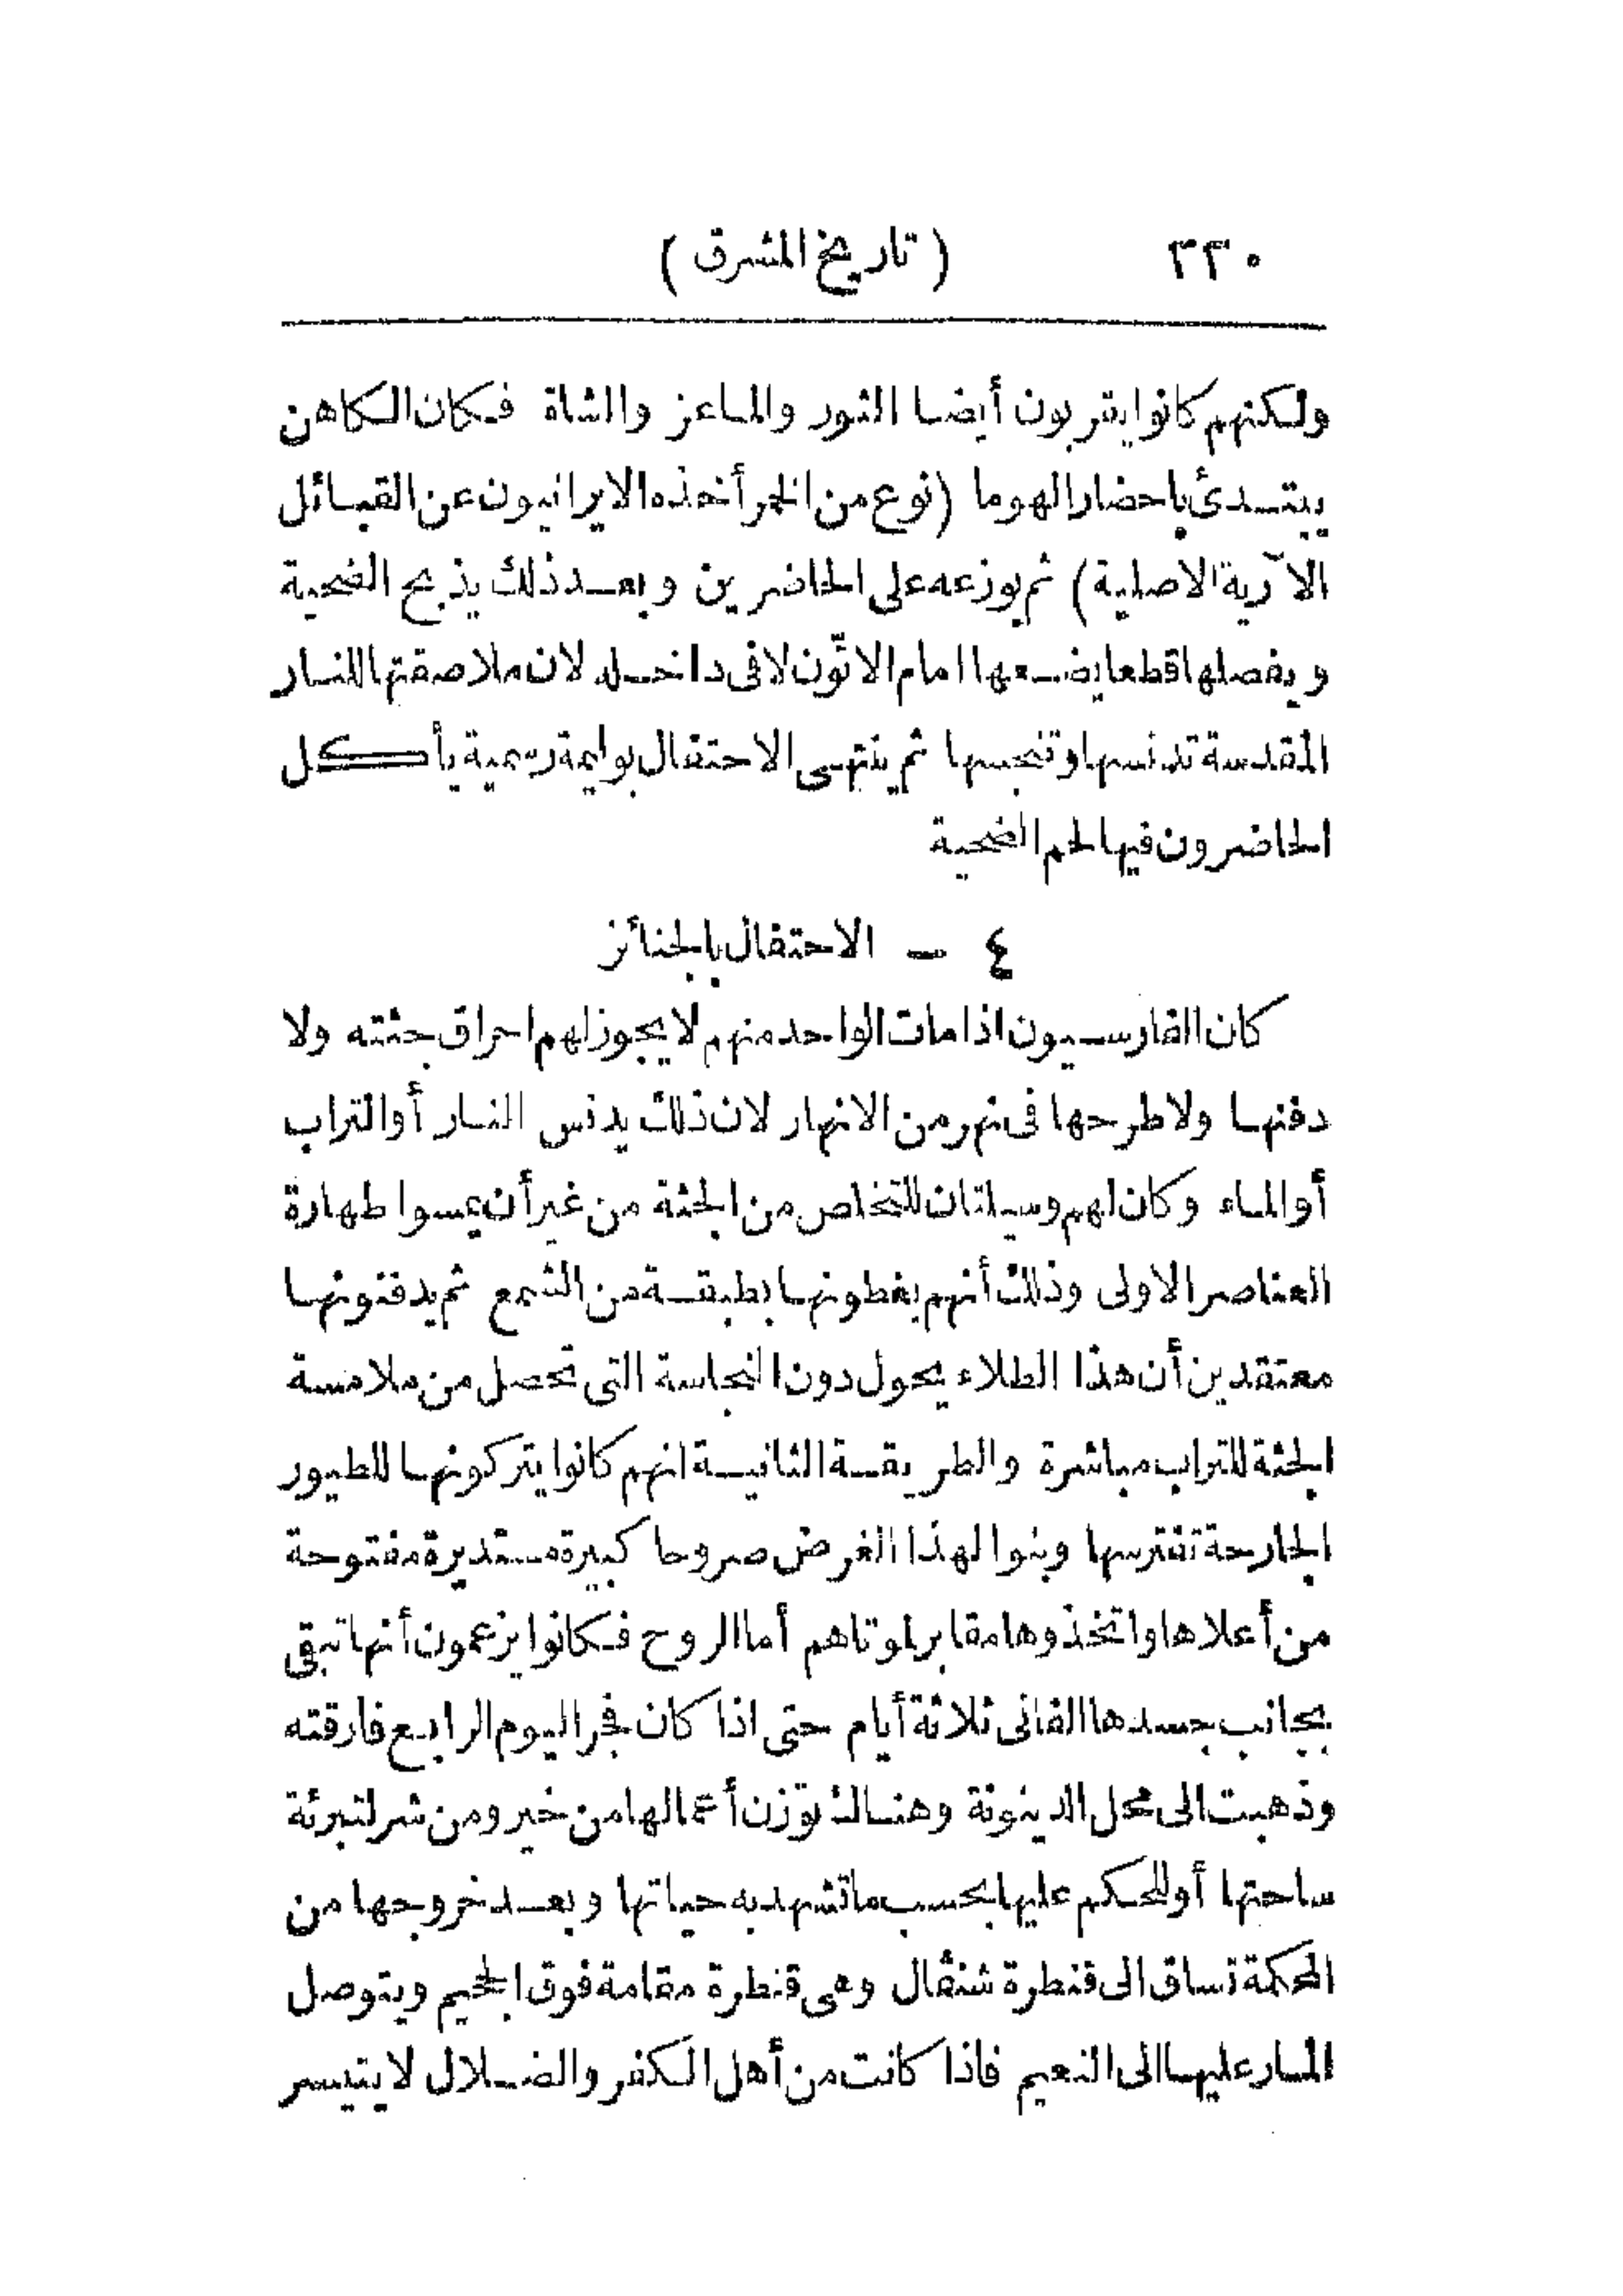 ٣٣٠ ( تاريخ المشرق )
ولكنهم كانوا يقربون أيضا الثور والماعز والشاة فكان الكاهن
يبتدئ باحضار الهوما (نوع من الخمر أخذه الايرانيون عن القبائل
الآرية الاصلية) ثم يوزعه على الحاضرين وبعد ذلك يذبح الضحية
ويفصلها قطعا يضعها امام الاتّون لا فى داخله لان ملاصقتها للنار
المقدسة تدنسها وتنجسها ثم ينتهى الاحتفال بوليمة رسمية يأكل
الحاضرون فيها لحم الضحية
٤ - الاحتفال بالجنائز
كان الفارسيون اذا مات الواحد منهم لا يجوز لهم احراق جثته ولا
دفنها ولا طرحها فى نهر من الانهار لان ذلك يدنس النار أو التراب
أو الماء وكان لهم وسيلتان للتخلص من الجثة من غير أن يمسوا طهارة
العناصر الاولى وذلك أنهم يغطونها بطبقة من الشمع ثم يدفنونها
معتقدين أن هذا الطلاء يحول دون النجاسة التى تحصل من ملامسة
الجثة للتراب مباشرة والطريقة الثانية انهم كانوا يتركونها للطيور
الجارحة تفترسها وبنوا لهذا الغرض صروحا كبيرة مستديرة مفتوحة
من أعلاها واتخذوها مقابر لموتاهم أما الروح فكانوا يزعمون أنها تبقى
بجانب جسدها الفانى ثلاثة أيام حتى اذا كان فجر اليوم الرابع فارقته
وذهبت الى محل الدينونة وهنالك توزن أعمالها من خير ومن شر لتبرئة
ساحتها أو للحكم عليها بحسب ما تشهد به حياتها وبعد خروجها من
المحكمة تساق الى قنطرة شنڤال وهى قنطرة مقامة فوق الجحيم ويتوصل
المار عليها الى النعيم فاذا كانت من أهل الكفر والضلال لا يتيسر